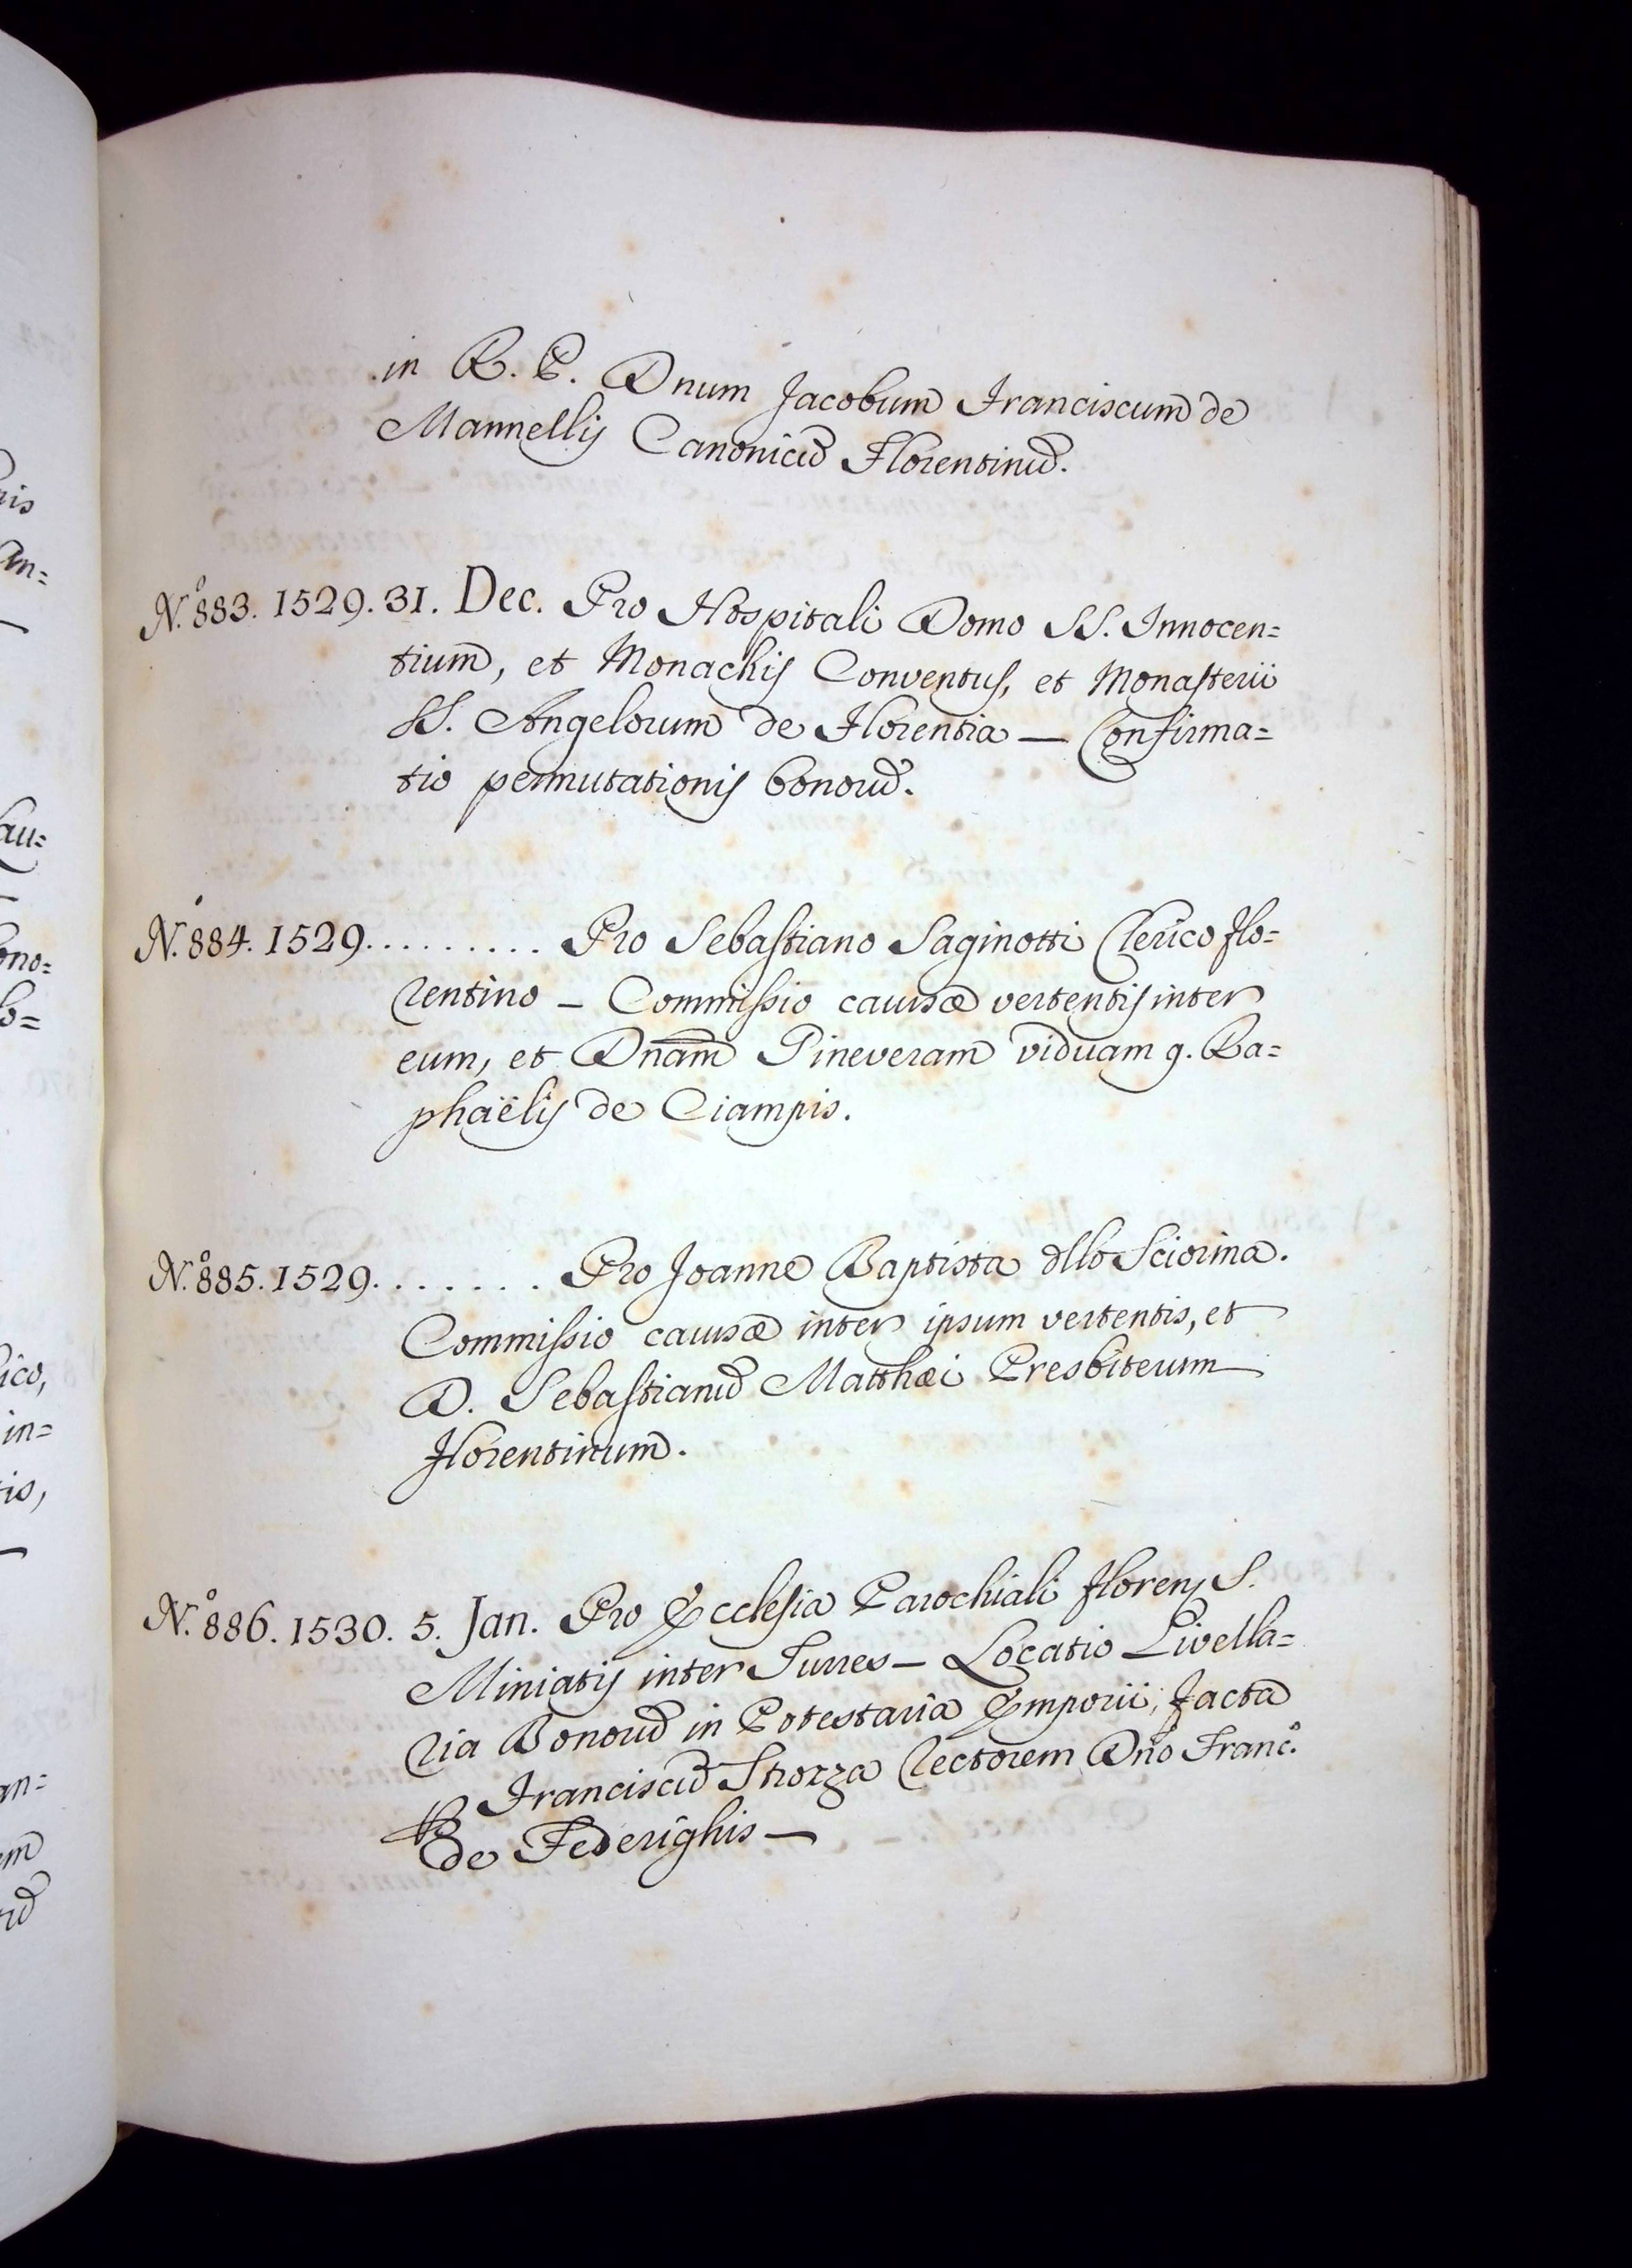 in R. P. Dnum Jacobum Franciscum de
Mannellis Canonicũ Florentinũ.
N.º 883. 1529. 31. Dec. Pro Hospitali Domo SS. Innocen=
tium, et Monachis Conventus, et Monasterii
SS. Angelorum de Florentia — Confirma=
tio permutationis bonorũ.
N.º 884. 1529. . . . . . . . . . Pro Sebastiano Saginotti Clerico Flo=
rentino — Commissio causæ vertentis inter
eum, et Dnam̃ Gineveram viduam q. Ra=
phaëlis de Ciampis.
N.º 885. 1529. . . . . . . . Pro Joanne Baptista dllo Sciorina.
Commissio causæ inter ipsum vertentis, et
D. Sebastianũ Matthæi Presbiterum
Florentinum.
N.º 886. 1530. 5. Jan. Pro Ecclesia Parochiali Floren. S.
Miniatis inter Turres — Locatio Livella=
ria Bonorũ in Potestaria Emporii, facta
p Franciscũ Sforza Rectorem Dno Franc.º
de Federighis —